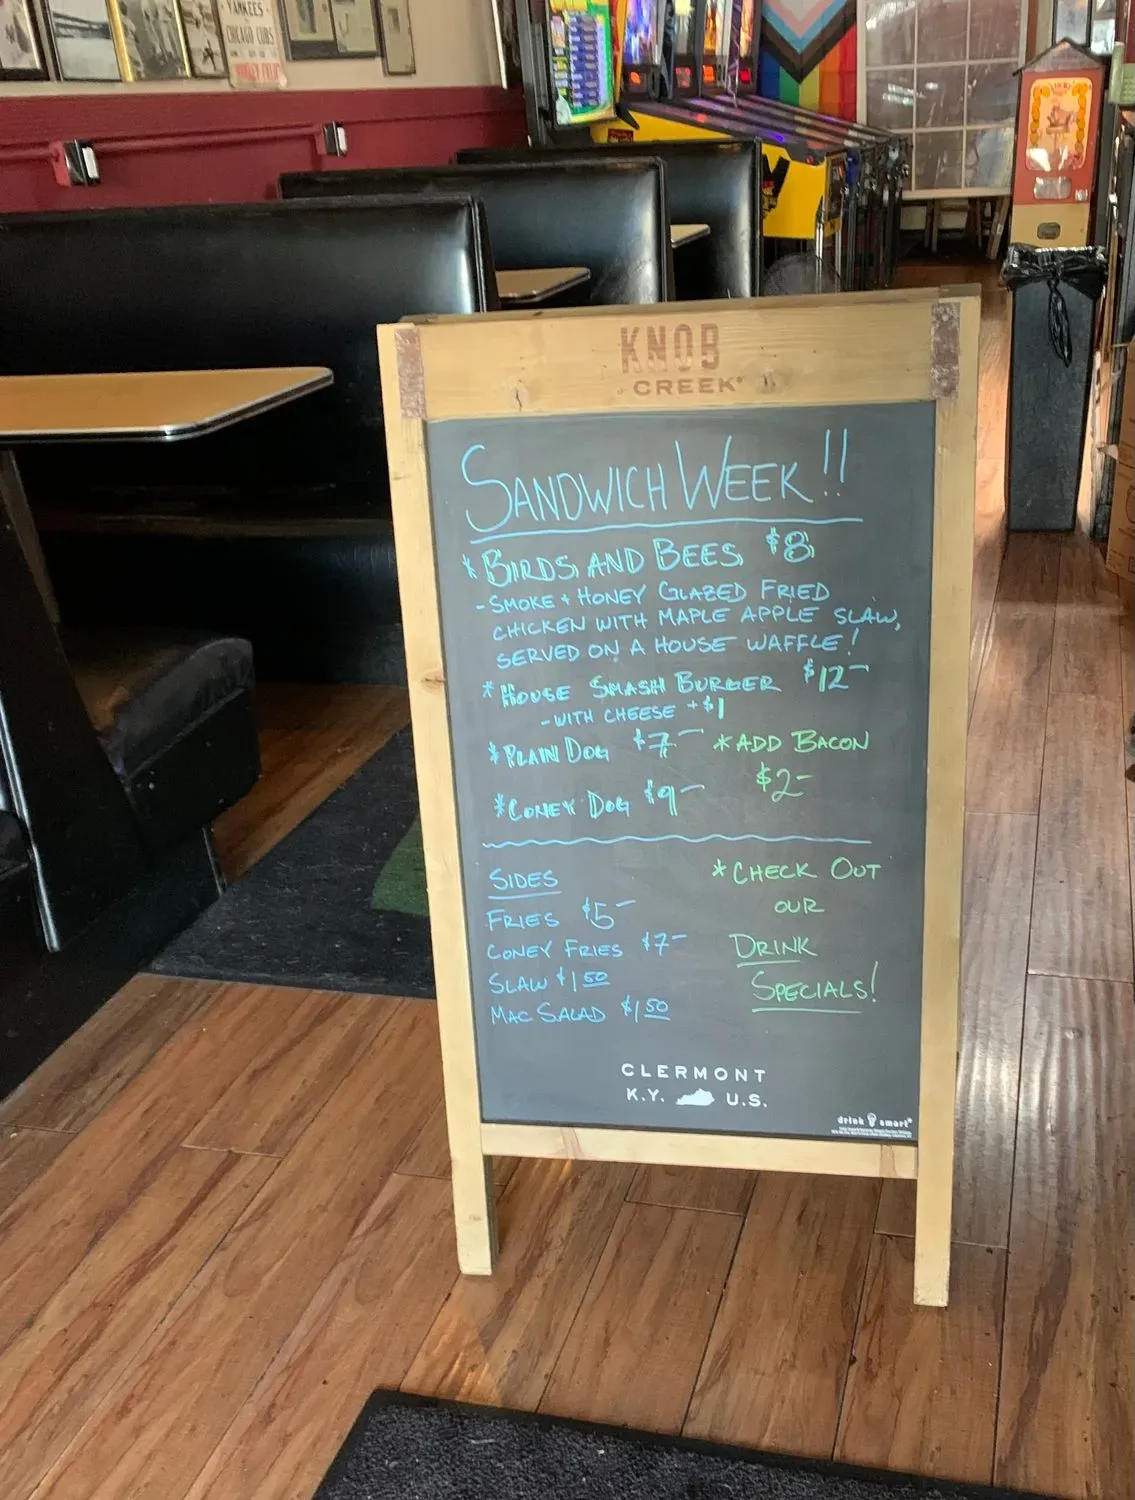 YANKEES
CHICAGO CUBS
WRIGLEY FIELD
KNOB
CREEK®
SANDWICH WEEK!!
* BIRDS AND BEES $8
- SMOKE + HONEY GLAZED FRIED
CHICKEN WITH MAPLE APPLE SLAW,
SERVED ON A HOUSE WAFFLE!
* HOUSE SMASH BURGER $12-
- WITH CHEESE +$1
* PLAIN DOG $7- * ADD BACON
$2-
* CONEY DOG $9-
SIDES
FRIES $5-
CONEY FRIES $7-
SLAW $1 50
MAC SALAD $1 50
* CHECK OUT
OUR
DRINK
SPECIALS!
CLERMONT
K.Y. U.S.
drink smart®